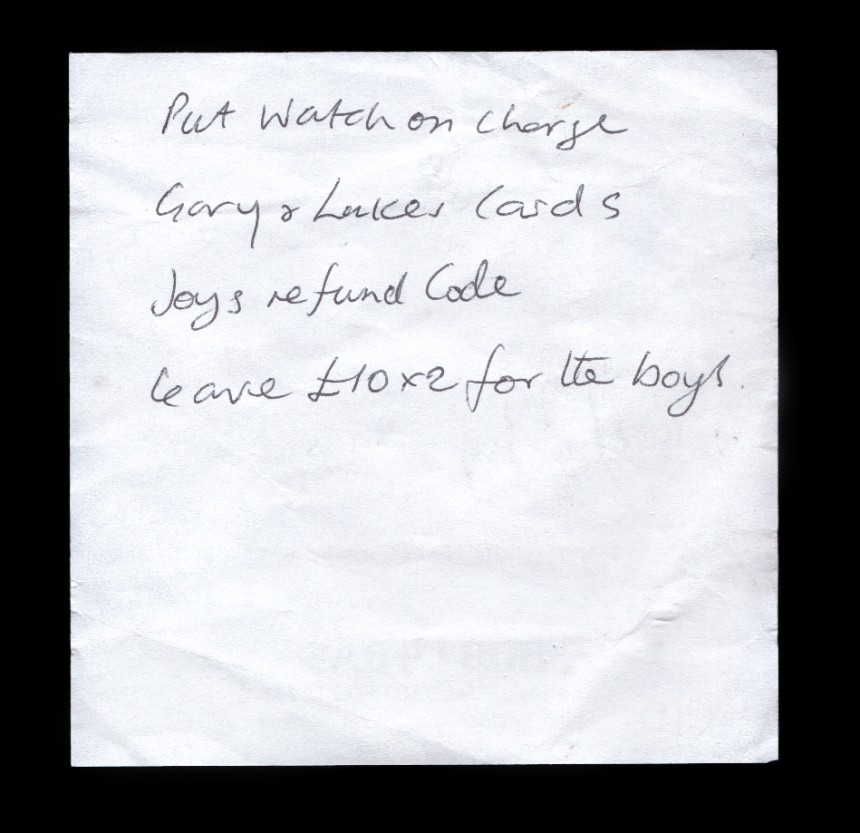 Put Watch on charge
Gary & Lukes Cards
Joys refund Code
leave £10x2 for the boys.